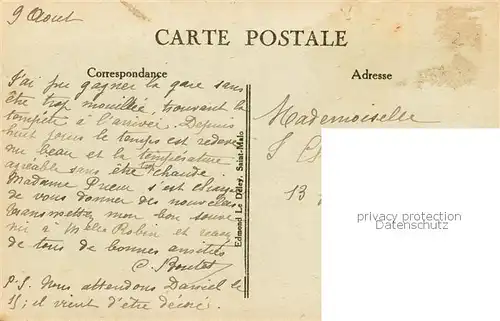 9 Août
CARTE POSTALE
Correspondance
Adresse
J'ai pu gagner la gare sans
être trop mouillée trouvant la
tempête à l'arrivée. Depuis
huit jours le temps est redevenu
au beau et la température
agréable sans être chaude.
Madame s'est chargée
de vous donner des nouvelles
transmettez mon bon souve
nir à Melles Robin et recevez
de tous de bonnes amitiés
P.S. Nous attendons Daniel le
15; il vient d'être décoré.
Edmond Le Deley, Saint-Malo
Mademoiselle
13
privacy protection
Datenschutz